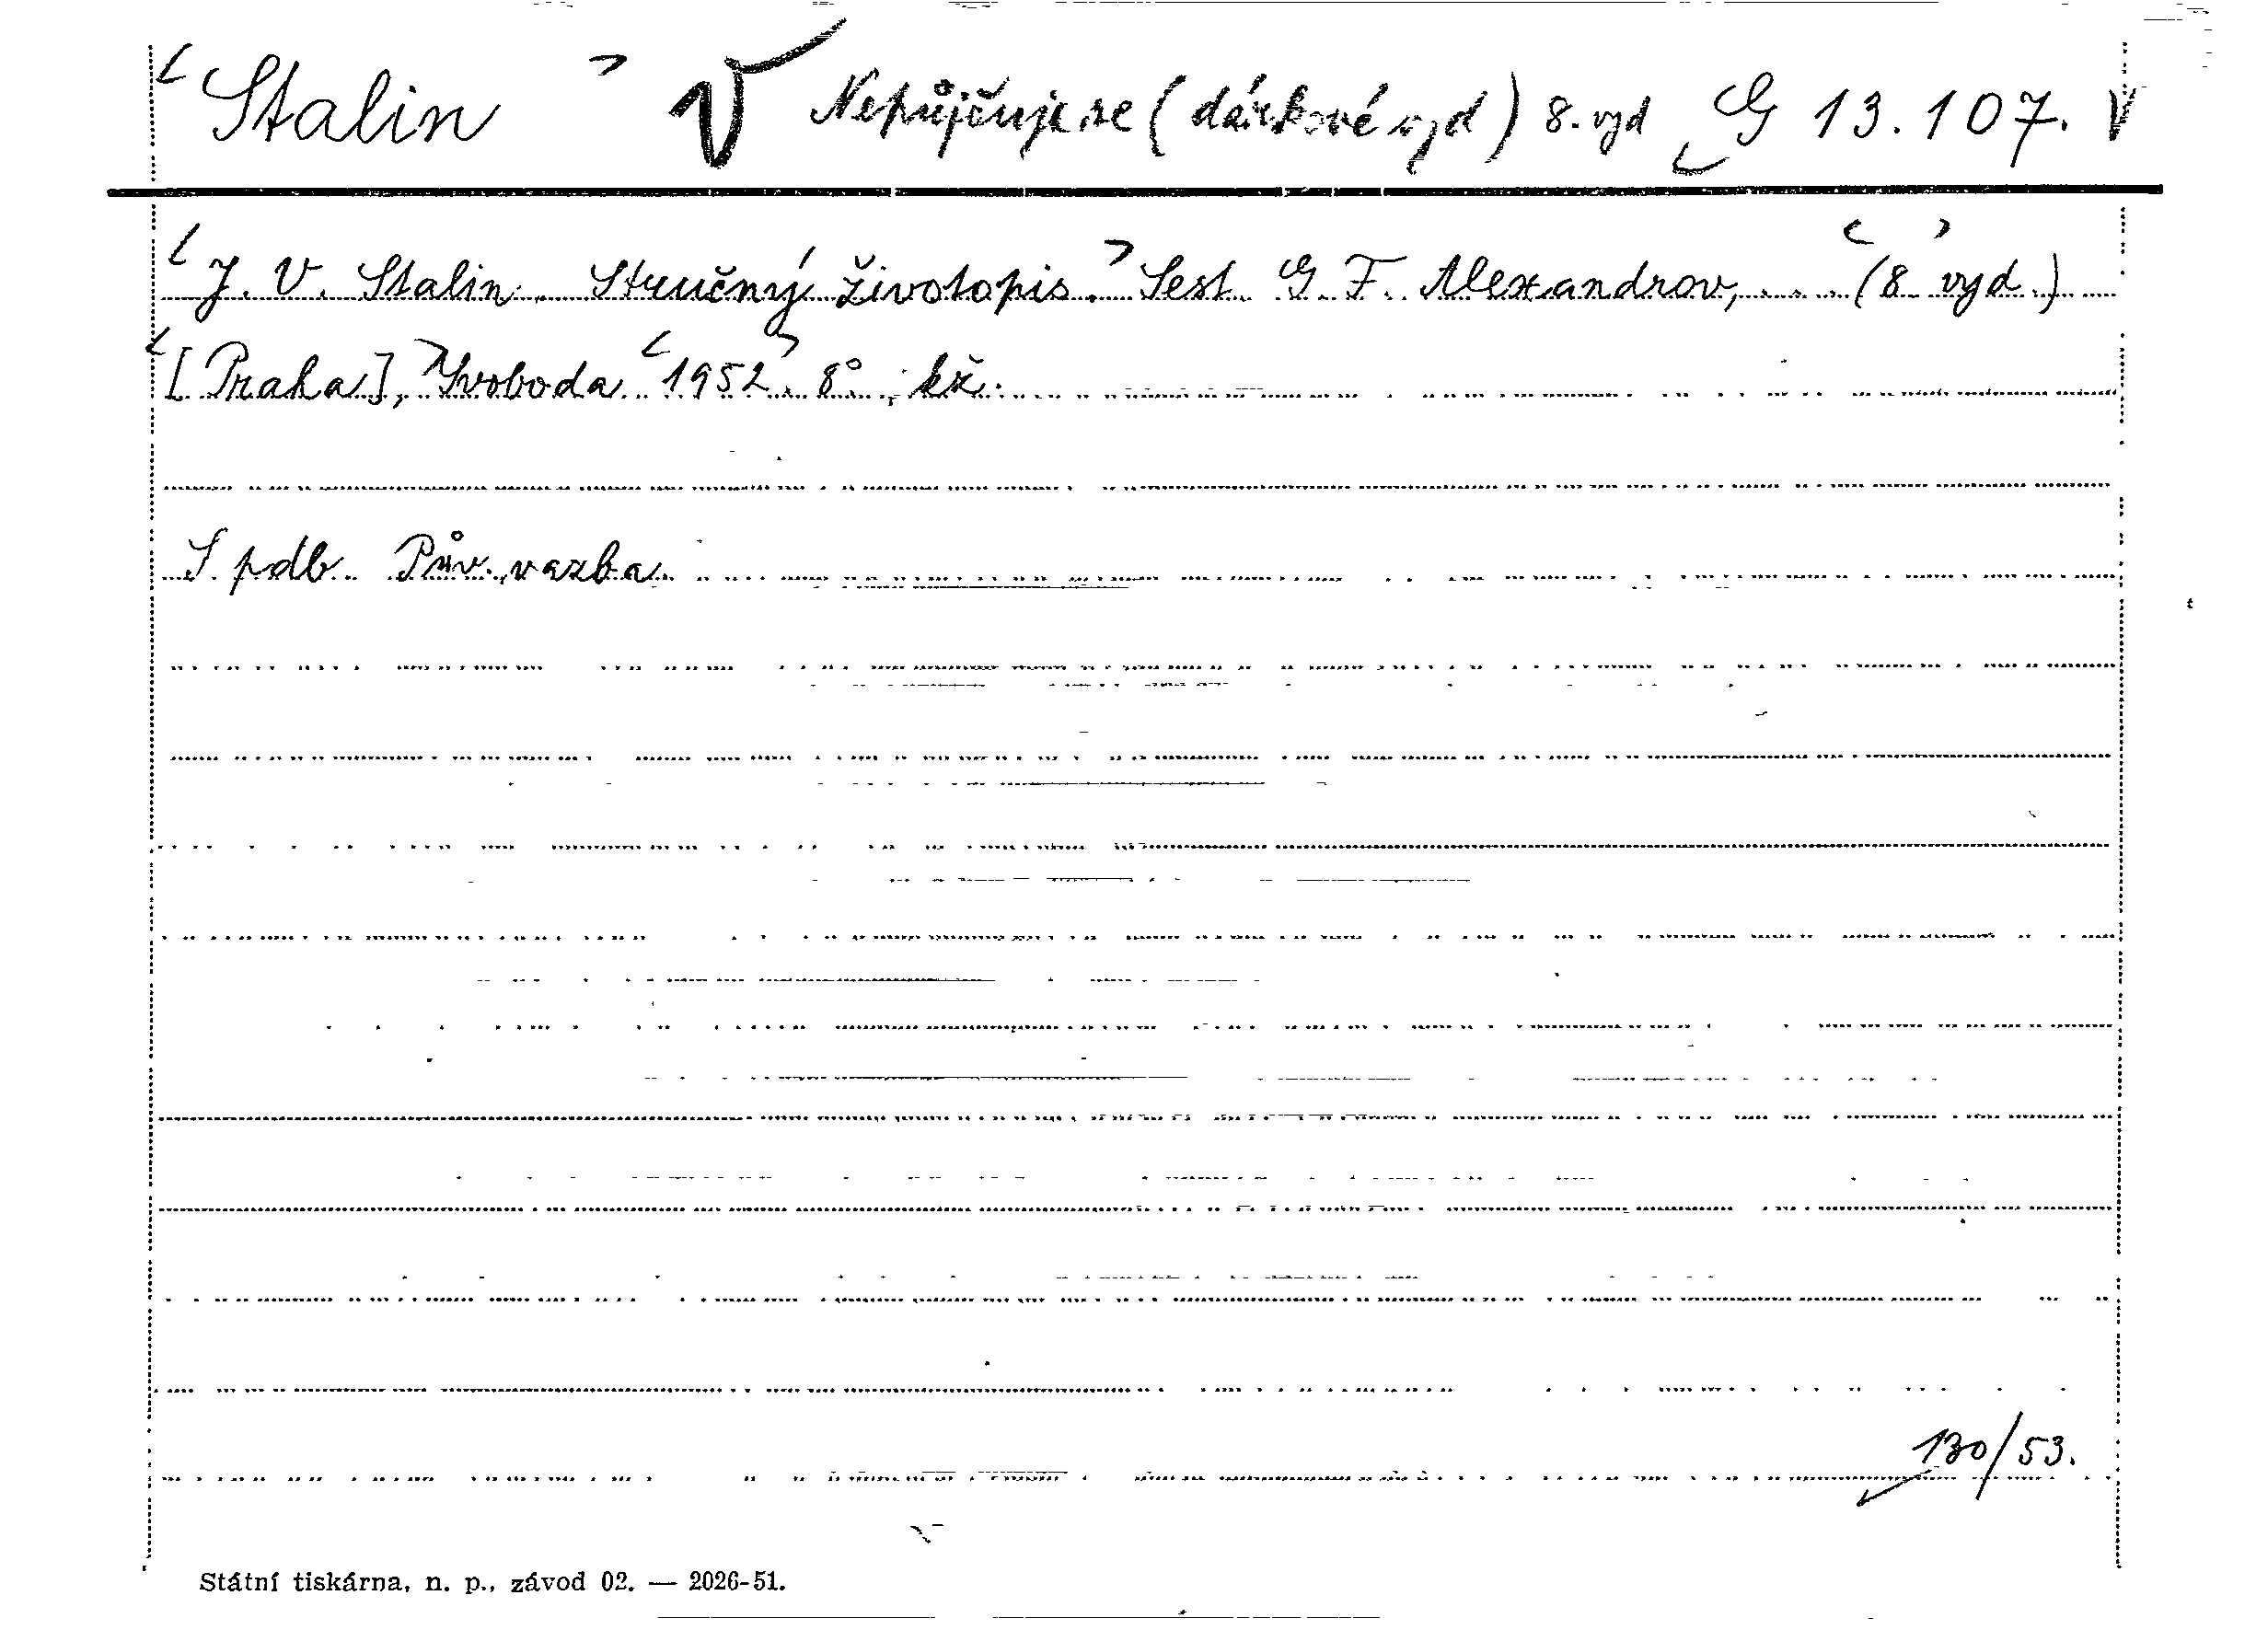 Stalin V Nepůjčuje se (dárkové vyd) 8. vyd G 13.107. V
J. V. Stalin. Stručný životopis. Sest. G. F. Alexandrov, ... (8. vyd.)
[Praha], Svoboda 1952. 8°, kž.
S pdb. Pův. vazba.
130/53.
Státní tiskárna, n. p., závod 02. — 2026-51.